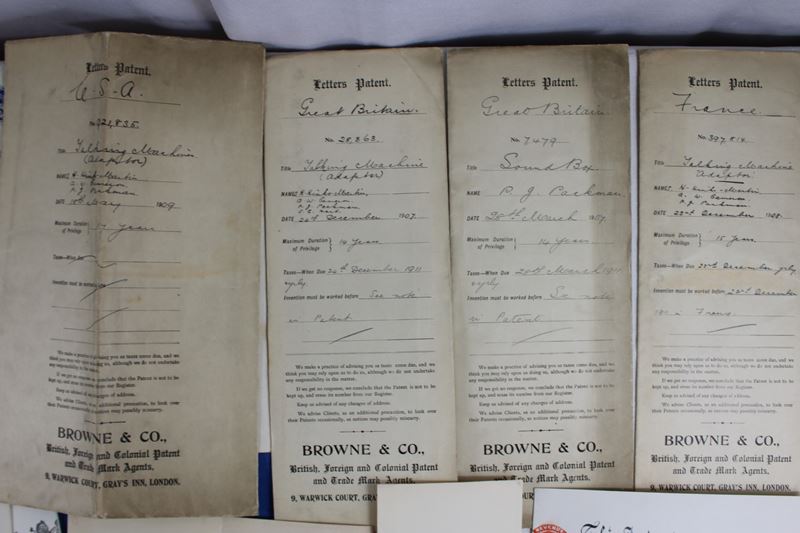 Letters Patent.
U.S.A.
No. 921,835.
Title Talking Machine
(Adaptor)
NAMES
DATE 18th May 1909.
Maximum Duration
of Privilege } 17 Years
Taxes—When Due
Invention must be worked
We make a practice of advising you as taxes come due, and we
think you may rely upon us to do so, although we do not undertake
any responsibility in the matter.
If we get no response, we conclude that the Patent is not to be
kept up, and erase its number from our Register.
Keep us advised of any changes of address.
We advise Clients, as an additional precaution, to look over
their Patents occasionally, as notices may possibly miscarry.
BROWNE & CO.,
British, Foreign and Colonial Patent
and Trade Mark Agents,
9, WARWICK COURT, GRAY'S INN, LONDON.
Letters Patent.
Great Britain.
No. 28,863.
Title Talking Machine
(Adaptor)
NAMES
DATE December 1907.
Maximum Duration
of Privilege } 14 Years.
Taxes—When Due December 1911
Invention must be worked before See note
in Patent
We make a practice of advising you as taxes come due, and we
think you may rely upon us to do so, although we do not undertake
any responsibility in the matter.
If we get no response, we conclude that the Patent is not to be
kept up, and erase its number from our Register.
Keep us advised of any changes of address.
We advise Clients, as an additional precaution, to look over
their Patents occasionally, as notices may possibly miscarry.
BROWNE & CO.,
British, Foreign and Colonial Patent
and Trade Mark Agents,
9, WARWICK COURT, GRAY'S
Letters Patent.
Great Britain.
No. 7479.
Title Sound Box.
NAME P. J. Packman.
DATE March
Maximum Duration
of Privilege } 14 Years.
Taxes—When Due March 1911
Invention must be worked before See note
in Patent
We make a practice of advising you as taxes come due, and we
think you may rely upon us to do so, although we do not undertake
any responsibility in the matter.
If we get no response, we conclude that the Patent is not to be
kept up, and erase its number from our Register.
Keep us advised of any changes of address.
We advise Clients, as an additional precaution, to look over
their Patents occasionally, as notices may possibly miscarry.
BROWNE & CO.,
British, Foreign and Colonial Patent
and Trade Mark Agents,
9, WARWICK COURT, GRAY'S INN, LONDON.
Letters Patent.
France.
No. 397,814.
Title Talking Machine
Adaptor
NAMES
DATE December 1908.
Maximum Duration
of Privilege } 15 Years.
Taxes—When Due December
Invention must be worked before December
in France
We make a practice of advising you as taxes come due, and we
think you may rely upon us to do so, although we do not undertake
any responsibility in the matter.
If we get no response, we conclude that the Patent is not to be
kept up, and erase its number from our Register.
Keep us advised of any changes of address.
We advise Clients, as an additional precaution, to look over
their Patents occasionally, as notices may possibly miscarry.
BROWNE & CO.,
British, Foreign and Colonial Patent
and Trade Mark Agents,
9, WARWICK COURT, GRAY'S INN, LONDON.